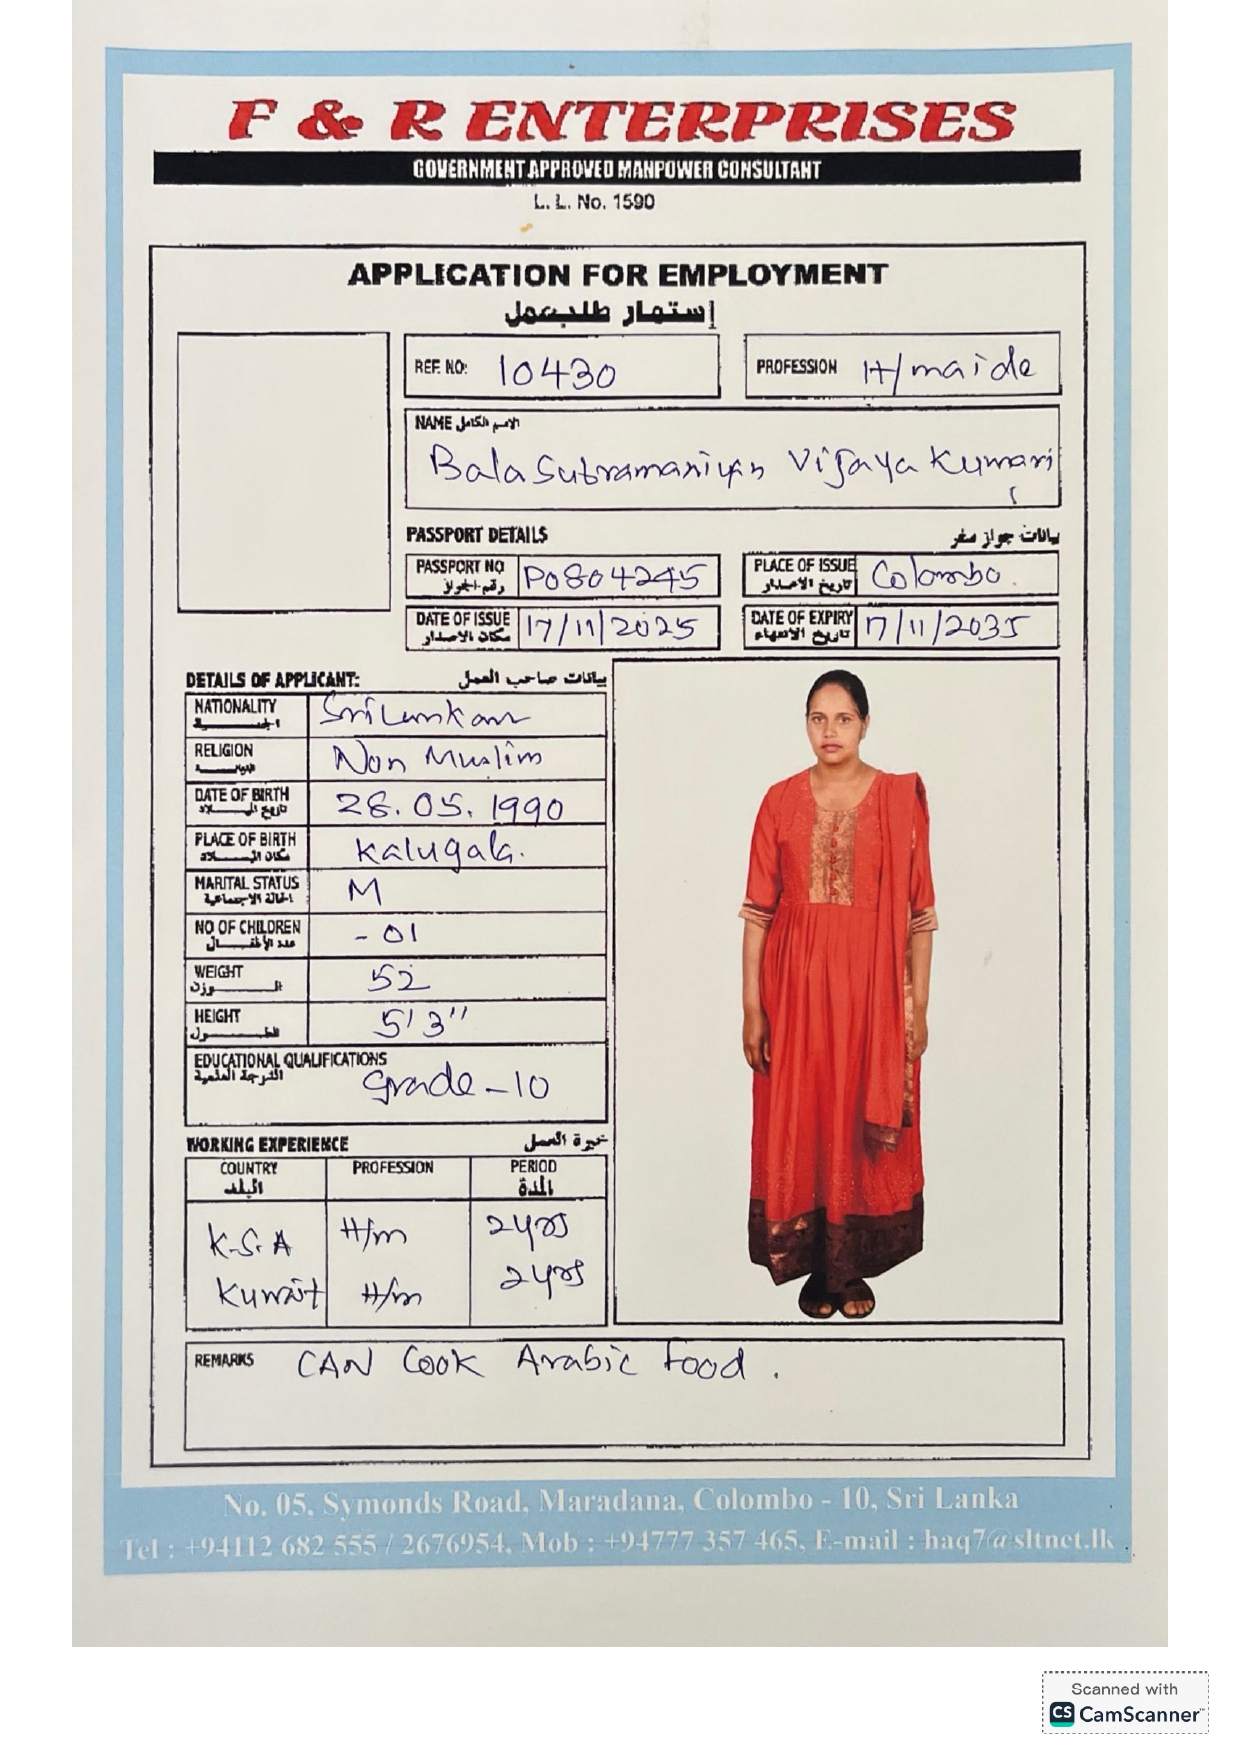 F & R ENTERPRISES
GOVERNMENT APPROVED MANPOWER CONSULTANT
L. L. No. 1590
APPLICATION FOR EMPLOYMENT
إستمار طلب عمل
REF. NO: 10430
PROFESSION H/maide
NAME الاسم الكامل
Bala Subramaniyan Vijaya Kumari
PASSPORT DETAILS بيانات جواز سفر
PASSPORT NO رقم الجواز P0804245
PLACE OF ISSUE تاريخ الاصدار Colombo.
DATE OF ISSUE مكان الاصدار 17/11/2025
DATE OF EXPIRY تاريخ الانتهاء 17/11/2035
DETAILS OF APPLICANT: بيانات صاحب العمل
NATIONALITY الجنسية Sri Lankan
RELIGION الديانة Non Muslim
DATE OF BIRTH تاريخ الميلاد 28.05.1990
PLACE OF BIRTH مكان الميلاد Kalugala.
MARITAL STATUS الحالة الاجتماعية M
NO OF CHILDREN عدد الأطفال - 01
WEIGHT الوزن 52
HEIGHT الطول 5'3"
EDUCATIONAL QUALIFICATIONS
الدرجة العلمية grade - 10
WORKING EXPERIENCE خبرة العمل
COUNTRY PROFESSION PERIOD
البلد المدة
K.S.A H/m 2yrs
Kuwait H/m 2yrs
REMARKS CAN Cook Arabic food.
No. 05, Symonds Road, Maradana, Colombo - 10, Sri Lanka
Tel : +94112 682 555 / 2676954, Mob : +94777 357 465, E-mail : haq7@sltnet.lk
Scanned with
CS CamScanner